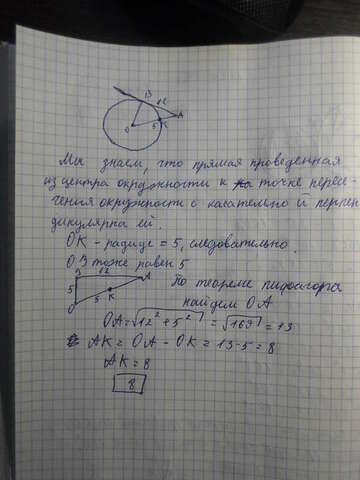 B
12
A
O
5
K
Мы знаем, что прямая проведенная
из центра окружности к точке пересе-
чения окружности с касательной перпен
дикулярна ей.
OK - радиус = 5, следовательно
OB тоже равен 5
B 12 A
5
K
5
O
По теореме пифагора
найдем OA
OA = √12² + 5² = √169 = 13
AK = OA - OK = 13 - 5 = 8
AK = 8
8